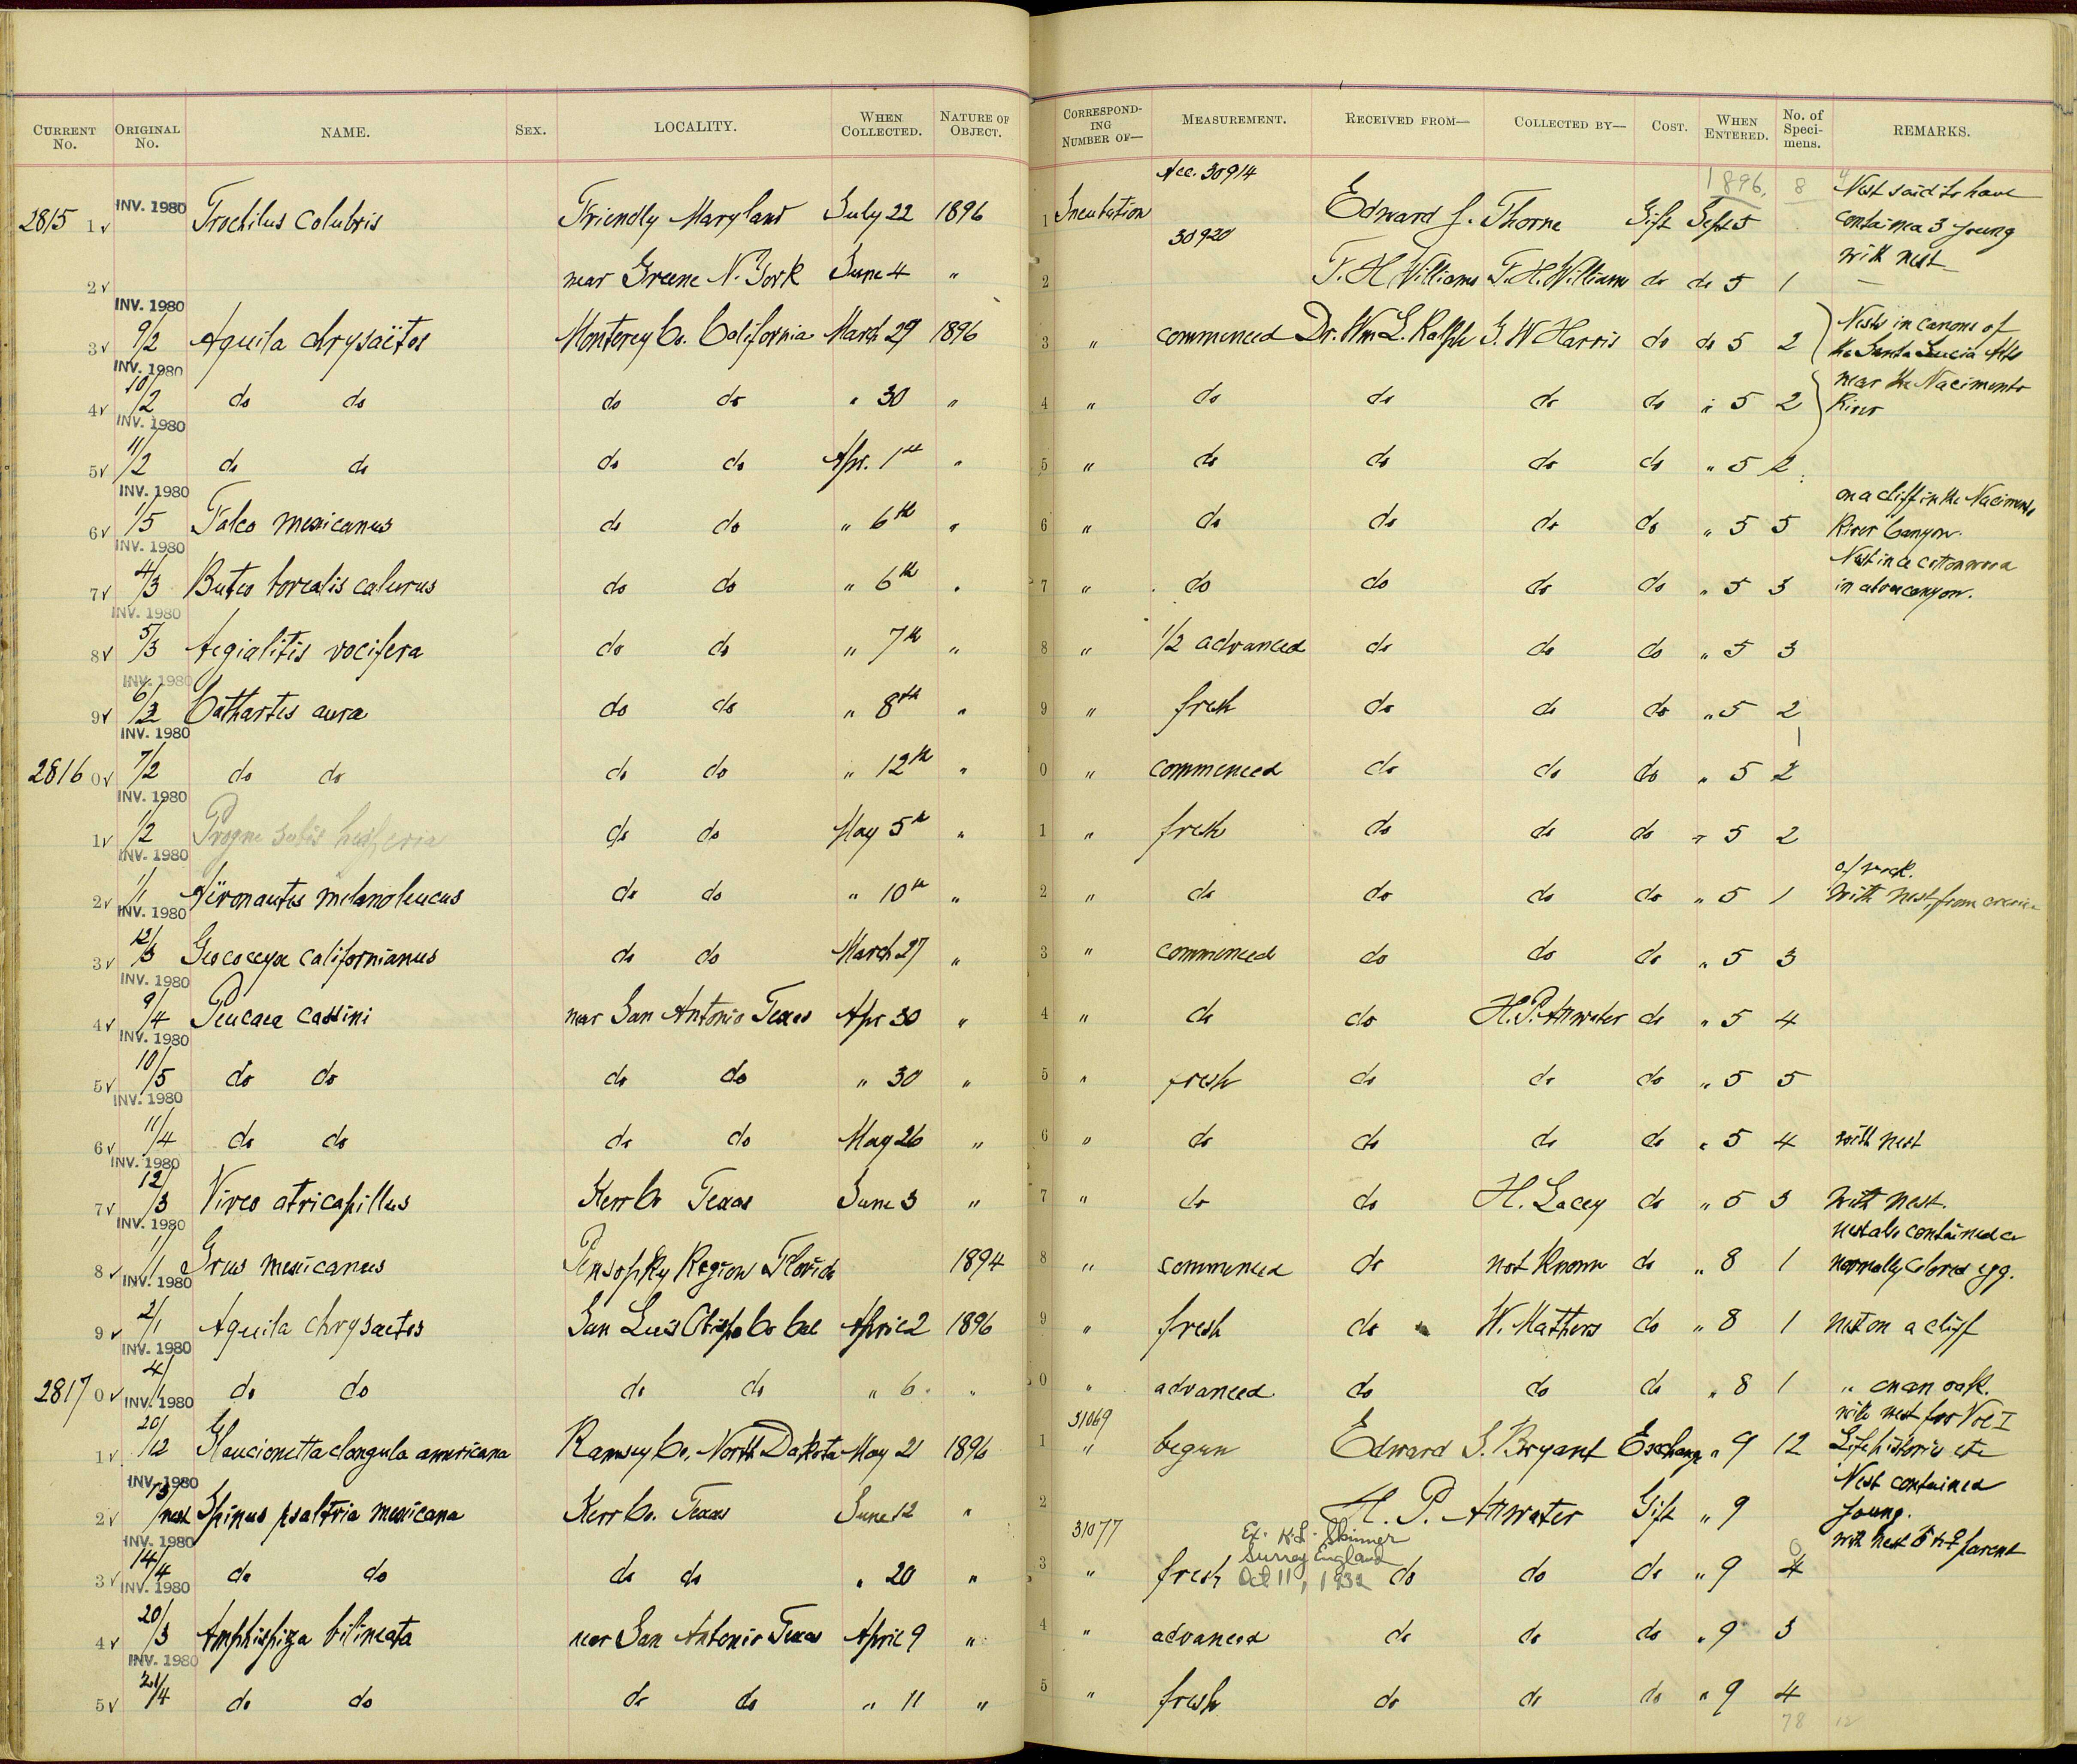 CURRENT No. ORIGINAL No. NAME. SEX. LOCALITY. WHEN COLLECTED. NATURE OF OBJECT. CORRESPOND-ING NUMBER OF— MEASUREMENT. RECEIVED FROM— COLLECTED BY— COST. WHEN ENTERED. No. of Speci-mens. REMARKS.
Acc. 30914 1896. 8
2815 1✓ INV. 1980 Trochilus colubris Friendly Maryland July 22 1896 1 Incubation Edward J. Thorne Gift Sept 5 Nest said to have contained 3 young with nest
30920
2✓ near Greene N. York June 4 " 2 F. H Williams F. H. Williams do do 5 1 —
INV. 1980
3✓ 9/2 Aquila chrysaëtos Monterey Co. California March 29 1896 3 " commenced Dr. Wm L. Ralph G. W Harris do do 5 2 Nests in canons of the Santa Lucia Mts near the Nacimento River
INV. 1980
4✓ 10/2 do do do do " 30 " 4 " do do do do " 5 2
INV. 1980
5✓ 11/2 do do do do Apr. 1st " 5 " do do do do " 5 2
INV. 1980
6✓ 1/5 Falco mexicanus do do " 6th " 6 " do do do do " 5 5 on a cliff in the Nacimento River Canyon.
INV. 1980
7✓ 4/3 Buteo borealis calurus do do " 6th " 7 " do do do do " 5 3 Nest in a cottonwood in above canyon.
INV. 1980
8✓ 5/3 Aegialitis vocifera do do " 7th " 8 " 1/2 advanced do do do " 5 3
INV. 1980
9✓ 6/2 Cathartes aura do do " 8th " 9 " fresh do do do " 5 2
INV. 1980
2816 0✓ 7/2 do do do do " 12th " 0 " commenced do do do " 5 2 1
INV. 1980
1✓ 1/2 Progne subis hesperia do do May 5th " 1 " fresh do do do " 5 2
INV. 1980
2✓ 1/1 Aëronautes melanoleucus do do " 10th " 2 " do do do do " 5 1 With nest, from crevice of rock.
INV. 1980
3✓ 12/3 Geococcyx californianus do do March 27 " 3 " commenced do do do " 5 3
INV. 1980
4✓ 9/4 Peucaea cassini near San Antonio Texas Apr 30 " 4 " do do H. P. Attwater do " 5 4
INV. 1980
5✓ 10/5 do do do do " 30 " 5 " fresh do do do " 5 5
INV. 1980
6✓ 11/4 do do do do May 26 " 6 " do do do do " 5 4 with nest
INV. 1980
7✓ 12/3 Vireo atricapillus Kerr Co Texas June 3 " 7 " do do H. Lacey do " 5 3 With nest.
INV. 1980
8✓ 1/1 Grus mexicanus Region Florida 1894 8 " commenced do not known do " 8 1 nest also contained a normally colored egg.
INV. 1980
9✓ 2/1 Aquila chrysaetos San Luis Obispo Co Cal April 2 1896 9 " fresh do W. Mathers do " 8 1 nest on a cliff
INV. 1980
2817 0✓ 4/1 do do do do " 6 " 0 " advanced do do do " 8 1 " on an oak.
INV. 1980
31069
1✓ 20/12 Glaucionetta clangula americana Ramsey Co. North Dakota May 21 1896 1 " begun Edward S. Bryant Exchange " 9 12 with nest for Vol I Life histories etc
INV. 1980
2✓ 13/nest Spinus psaltria mexicana Kerr Co. Texas June 12 " 2 H. P. Attwater Gift " 9 Nest contained young.
INV. 1980
31077 Ex. K. L. Skinner Surrey England Oct 11, 1932
3✓ 14/4 do do do do " 20 " 3 " fresh do do do " 9 4 0 with nest & ♀ parent
INV. 1980
4✓ 20/3 Amphispiza bilineata near San Antonio Texas April 9 " 4 " advanced do do do " 9 3
INV. 1980
5✓ 21/4 do do do do " 11 " 5 " fresh do do do " 9 4
78 12